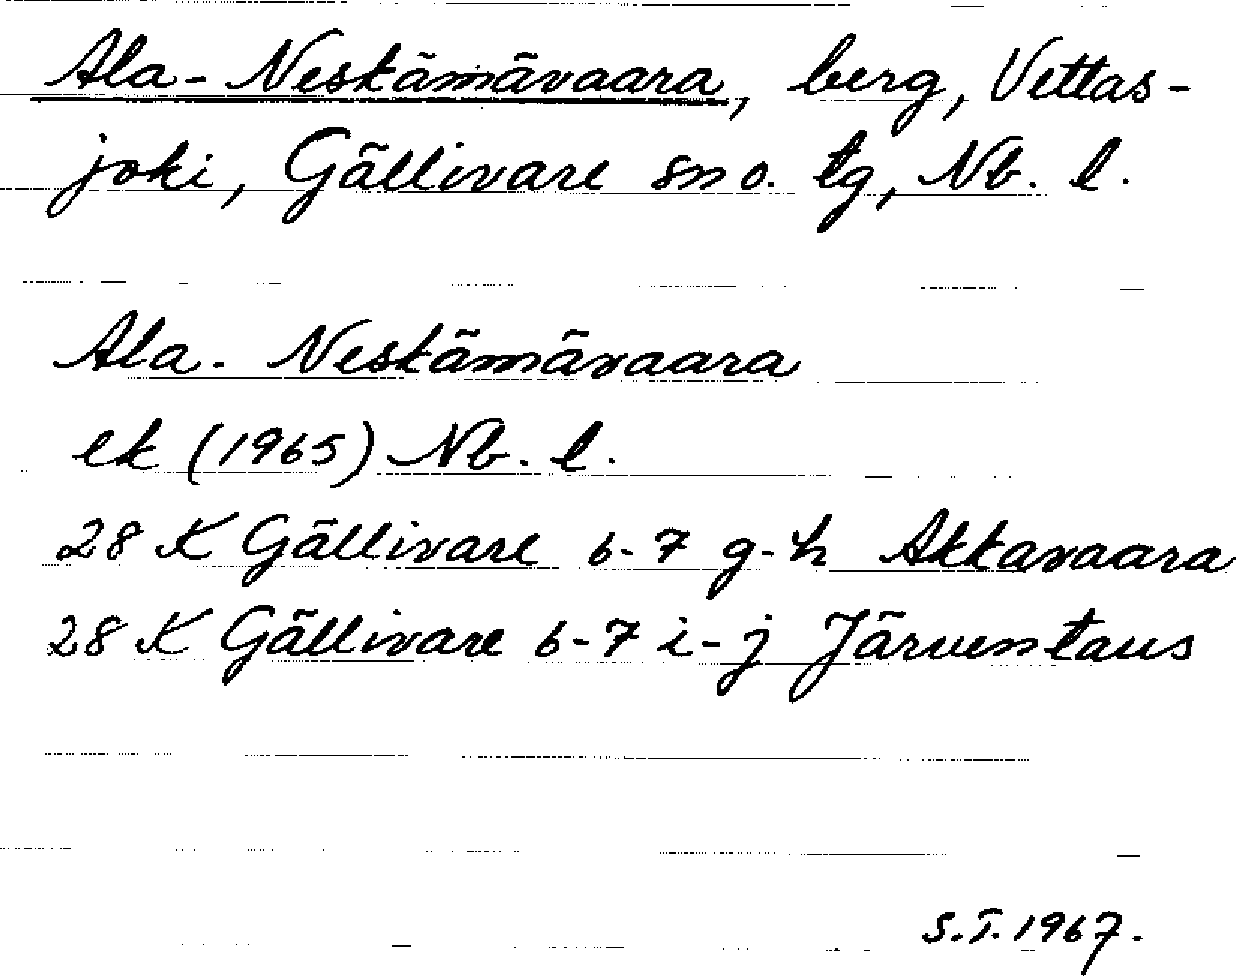 Ala-Neskämävaara, berg, Vettas-
joki, Gällivare sn o. tg, Nb. l.
Ala-Neskämävaara
ek (1965) Nb. l.
28 K Gällivare 6-7 g-h Akkavaara
28 K Gällivare 6-7 i-j Järventaus
S.T. 1967.